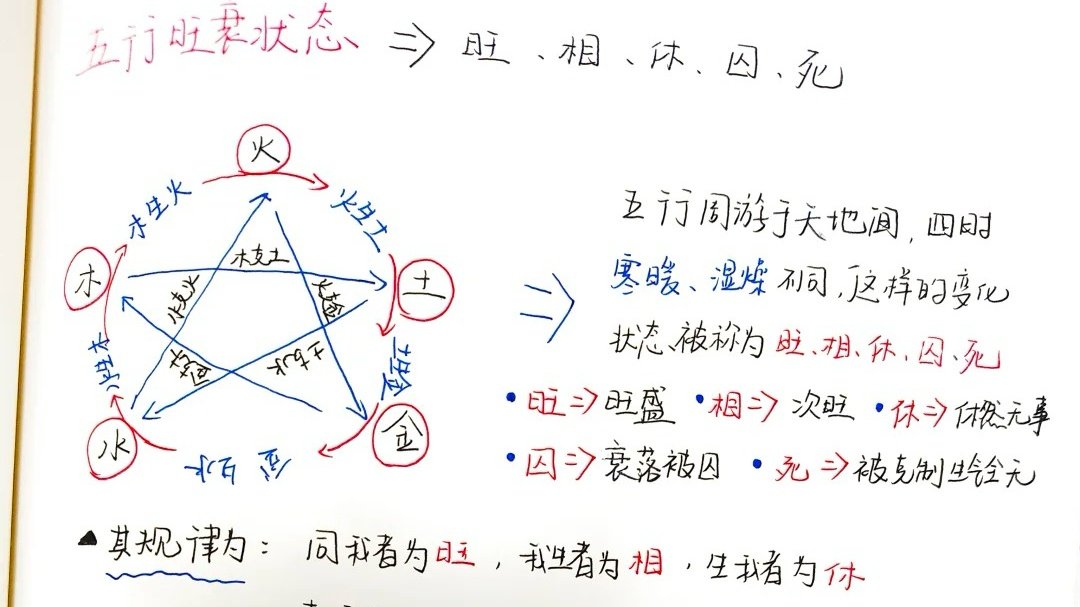 五行旺衰状态 ⇒ 旺、相、休、囚、死
火
木生火
火生土
木
土
木克土
水克火
火克金
水生木
土生金
金克木
土克水
水
金
金生水
⇒ 五行周游于天地间,四时
寒暖、湿燥不同,这样的变化
状态被称为 旺、相、休、囚、死
• 旺⇒旺盛 • 相⇒次旺 • 休⇒休然无事
• 囚⇒衰落被囚 • 死⇒被克制生全无
▲ 其规律为: 同我者为旺,我生者为相,生我者为休